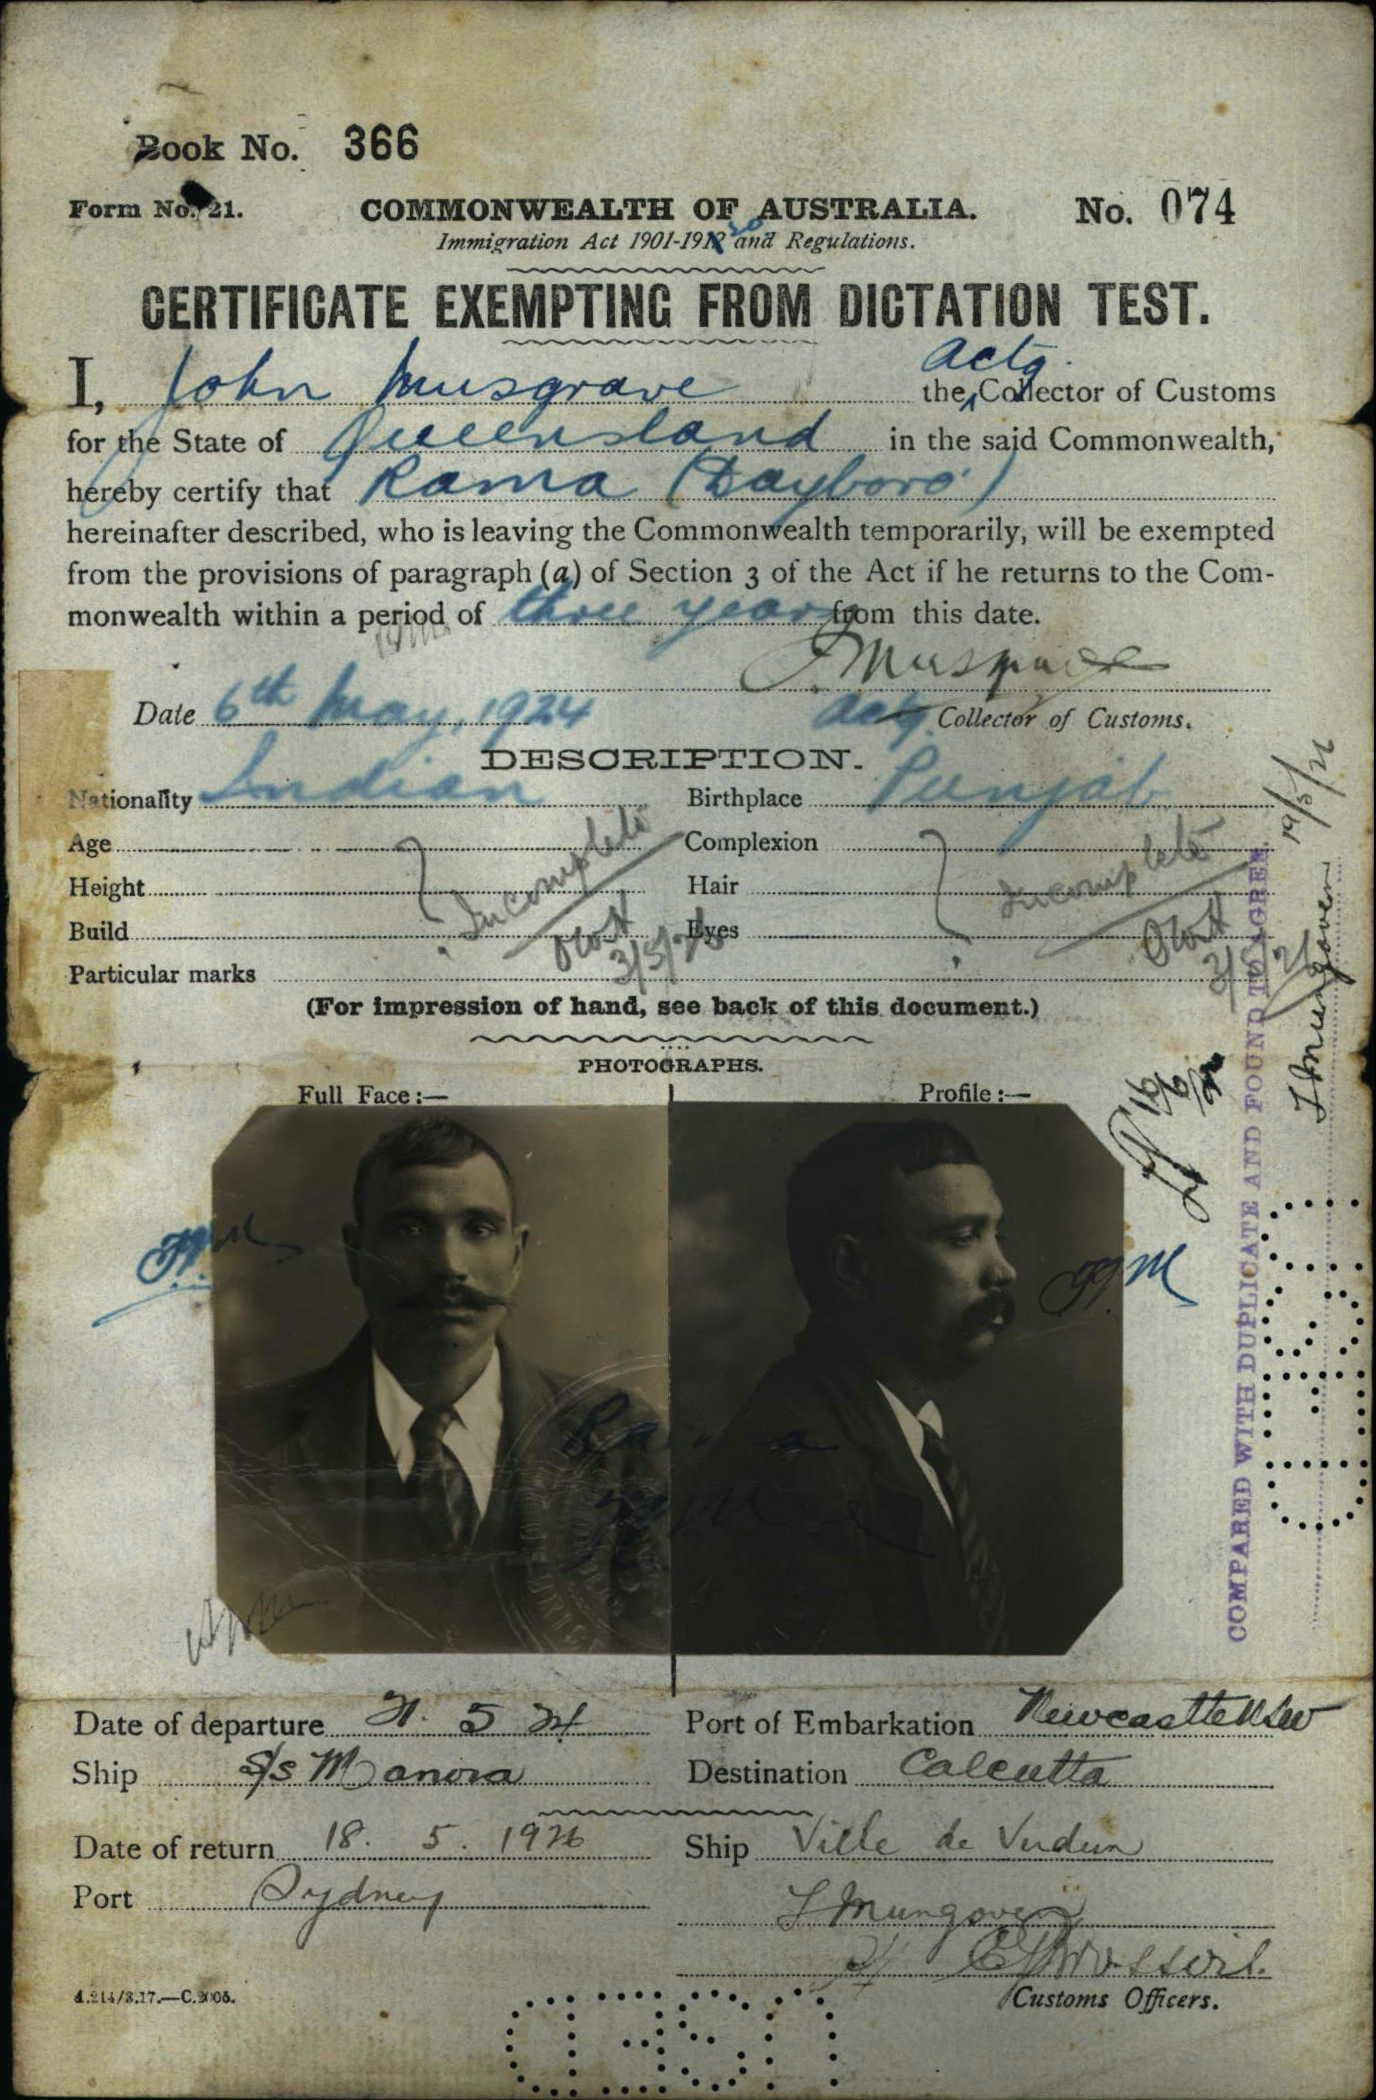 Book No. 366
Form No. 21.
COMMONWEALTH OF AUSTRALIA.
No. 074
Immigration Act 1901-1912 20 and Regulations.
CERTIFICATE EXEMPTING FROM DICTATION TEST.
I, John Musgrave the Actg. Collector of Customs
for the State of Queensland in the said Commonwealth,
hereby certify that Rama (Dayboro)
hereinafter described, who is leaving the Commonwealth temporarily, will be exempted
from the provisions of paragraph (a) of Section 3 of the Act if he returns to the Com-
monwealth within a period of three years from this date.
J. Musgrave
Date 6th May, 1924
Actg. Collector of Customs.
DESCRIPTION.
Nationality Indian
Birthplace Punjab
Age
Complexion
Height
Incomplete
Hair
Incomplete
Build
Eyes
3/5/26
Particular marks
(For impression of hand, see back of this document.)
PHOTOGRAPHS.
Full Face:—
Profile:—
COMPARED WITH DUPLICATE AND FOUND TO AGREE.
J Mungoven
19/5/26
Rama
Date of departure 21. 5 24
Port of Embarkation Newcastle NSW
Ship S/s Manora
Destination Calcutta
Date of return 18. 5. 1926
Ship Ville de Verdun
Port Sydney
J Mungoven
Customs Officers.
USED
USED